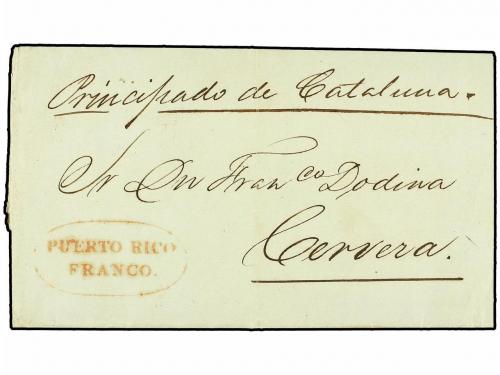 Principado de Cataluna.
Sr Dn Franco Dodina
Cervera.
PUERTO RICO
FRANCO.